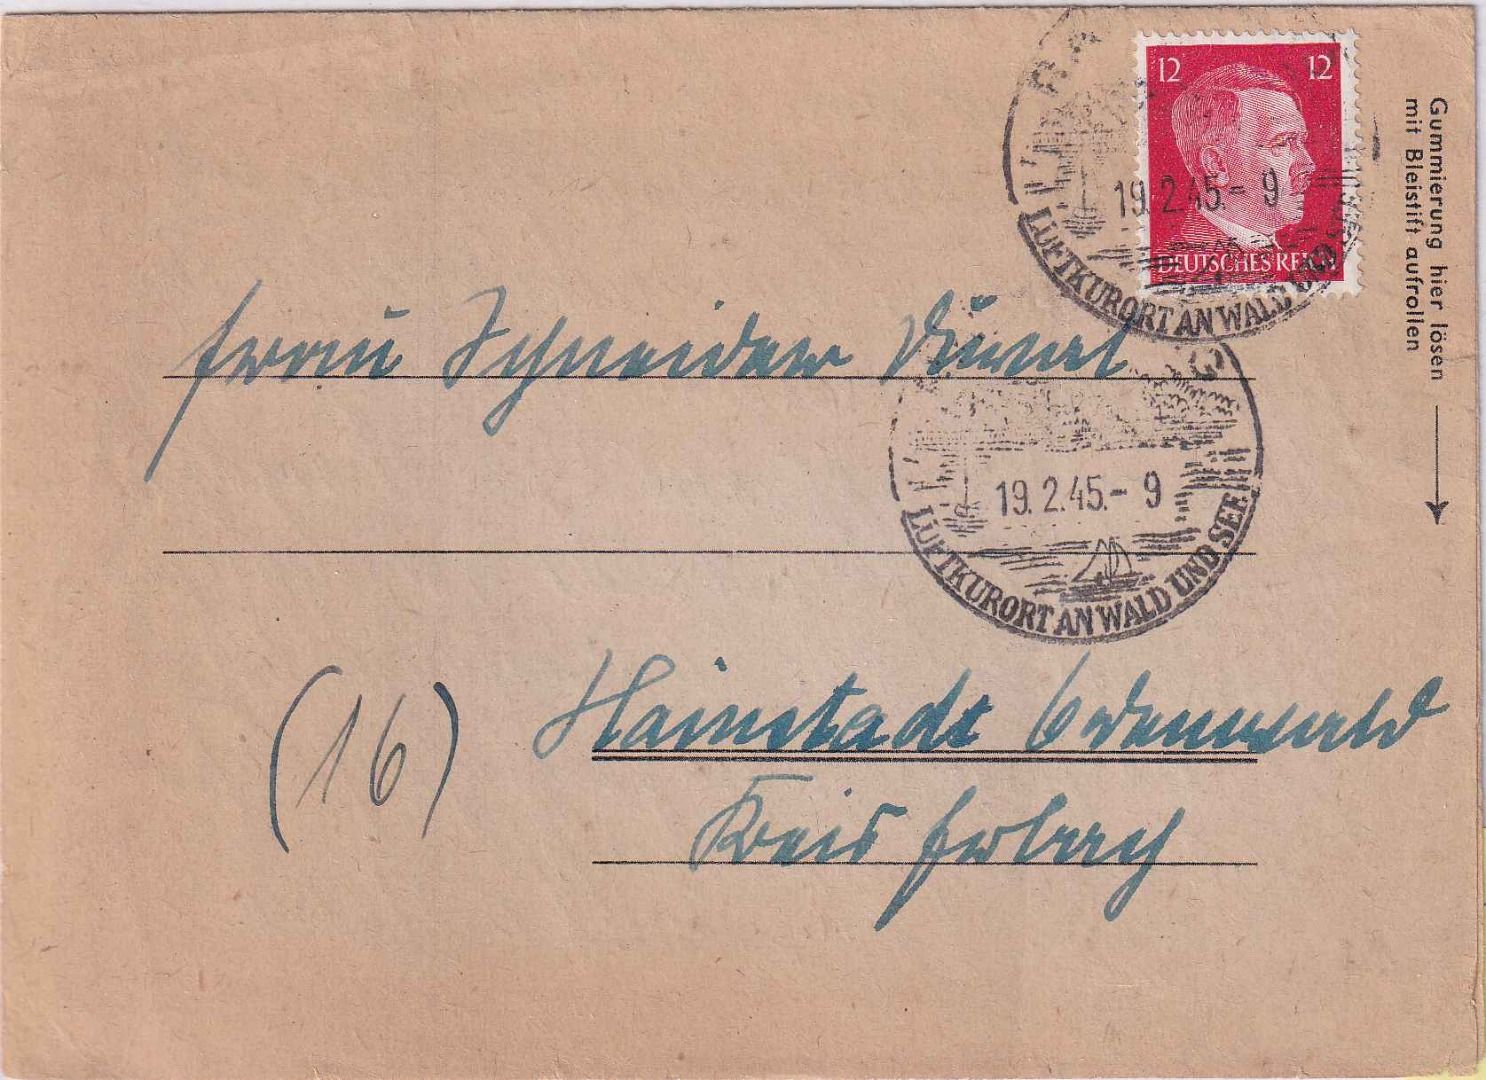 12 12
DEUTSCHES REICH
19.2.45.- 9
LUFTKURORT AN WALD UND SEE
Gummierung hier lösen
mit Bleistift aufrollen
Frau Schneider
19.2.45.- 9
LUFTKURORT AN WALD UND SEE
(16)
Hainstadt Odenwald
Kreis Erbach